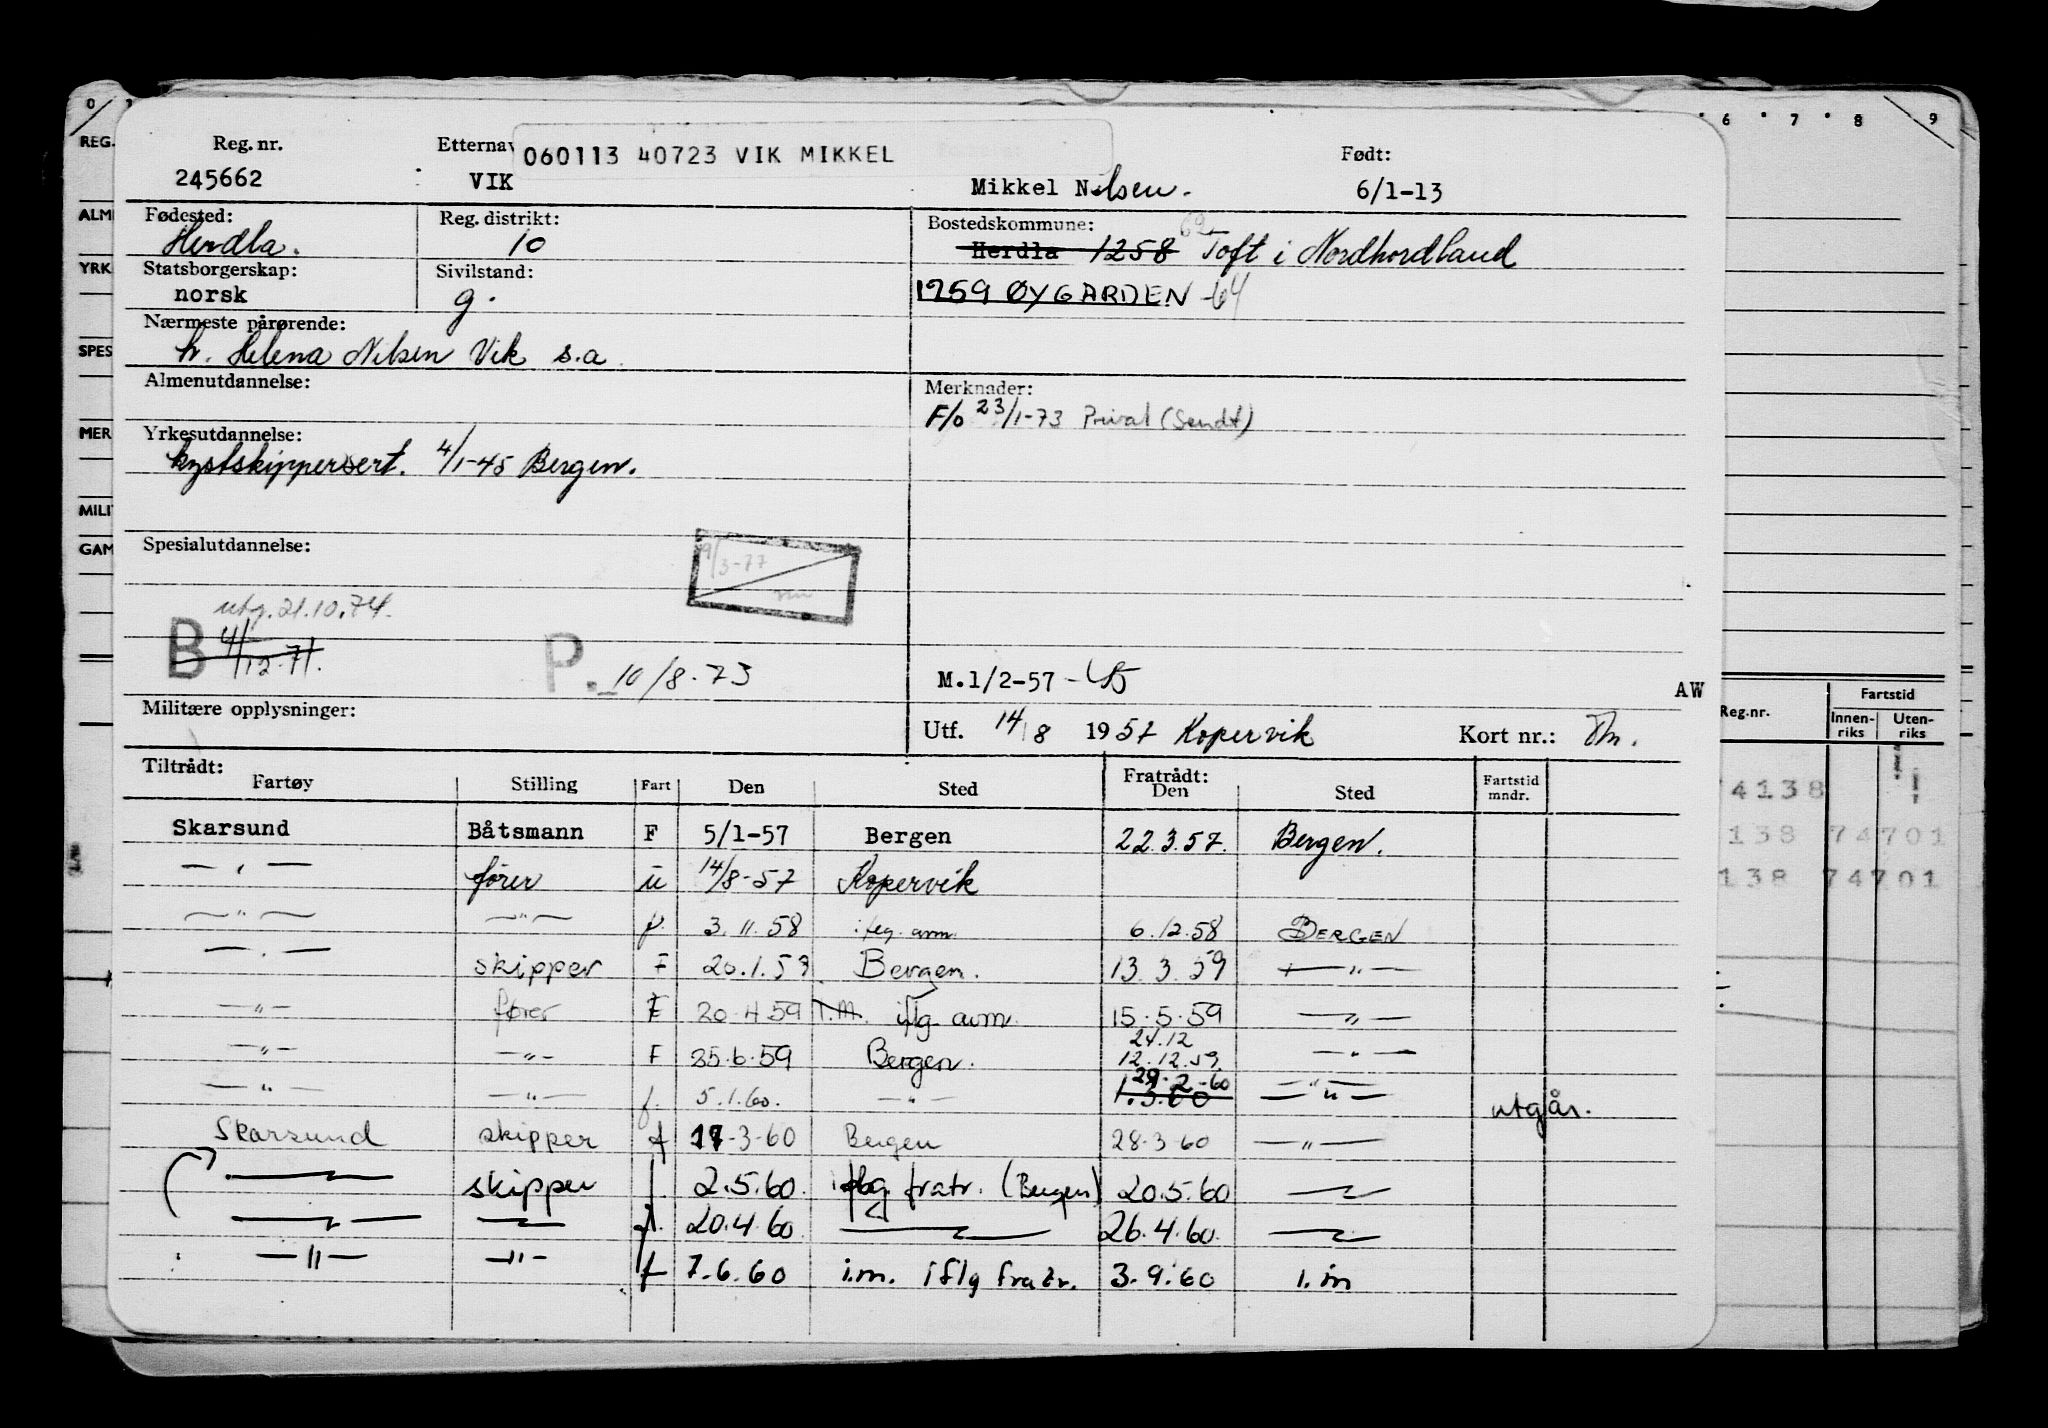 0 6 7 8 9
REG.
Reg. nr. Etternav 060113 40723 VIK MIKKEL Født:
245662 VIK Mikkel Nilsen. 6/1-13
ALM
Fødested: Reg. distrikt: Bostedskommune:
Herdla. 10 Herdla 1258 Toft i Nordhordland
YRK
Statsborgerskap: Sivilstand:
norsk g. 1259 ØYGARDEN -64
Nærmeste pårørende:
SPES
h. Helena Nilsen Vik s.a.
Almenutdannelse: Merknader:
F/o 23/1-73 Privat (Sendt)
MER
Yrkesutdannelse:
kystskippersert. 4/1-45 Bergen.
MILI
GAM
Spesialutdannelse:
9/3-77
utg. 21.10.74.
B 4/12-71.
P. 10/8-73
M.1/2-57 AW
Militære opplysninger:
Utf. 14/8 1957 Kopervik Kort nr.:
Reg.nr. Fartstid
Innen-riks Uten-riks
Tiltrådt: Fratrådt:
Fartøy Stilling Fart Den Sted Den Sted Fartstid mndr.
Skarsund Båtsmann F 5/1-57 Bergen 22.3.57. Bergen.
— " — fører u 14/8-57 Kopervik
— " — — " — f. 3.11.58 iflg. avm. 6.12.58 BERGEN
— " — skipper F 20.1.59 Bergen. 13.3.59 — " —
— " — fører F 20.4.59 I.M. iflg. avm. 15.5.59 — " —
— " — — " — F 25.6.59 Bergen. 24.12 12.12.59 — " —
— " — — " — f. 5.1.60. — " — 29-2-60 1.3.60 — " — utgår.
Skarsund skipper f 17-3-60 Bergen 28-3-60 — " —
— " — skipper f 2.5.60. iflg. fratr. (Bergen) 20.5.60 — " —
— " — — " — f. 20.4.60. — " — 26.4.60. — " —
— " — — " — f 7.6.60 i.m. iflg fratr. 3.9.60 i.m
4138
138 74701
138 74701